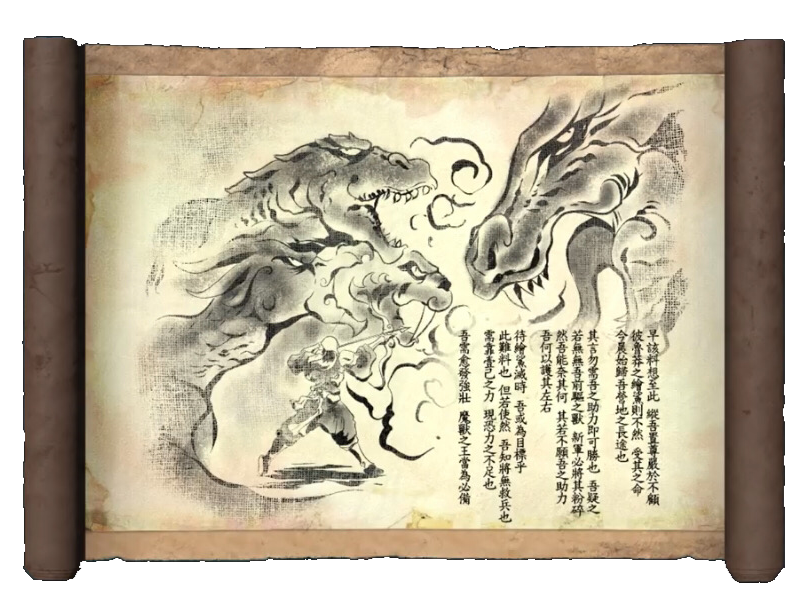 早該料想至此 縱吾置尊嚴於不顧
彼魯莽之繪鯊則不然 受其之命
今晨始歸吾營地之長途也
其言勿需吾之助力即可勝也 吾疑之
若無無吾前驅之獸 新軍必將其粉碎
然吾能奈其何 其若不願吾之助力
吾何以護其左右
待繪鯊滅時 吾或為目標乎
此難料也 但若使然 吾知將無救兵也
需靠吾己之力 現恐力之不足也
吾需愈發強壯 魔獸之王當為必備